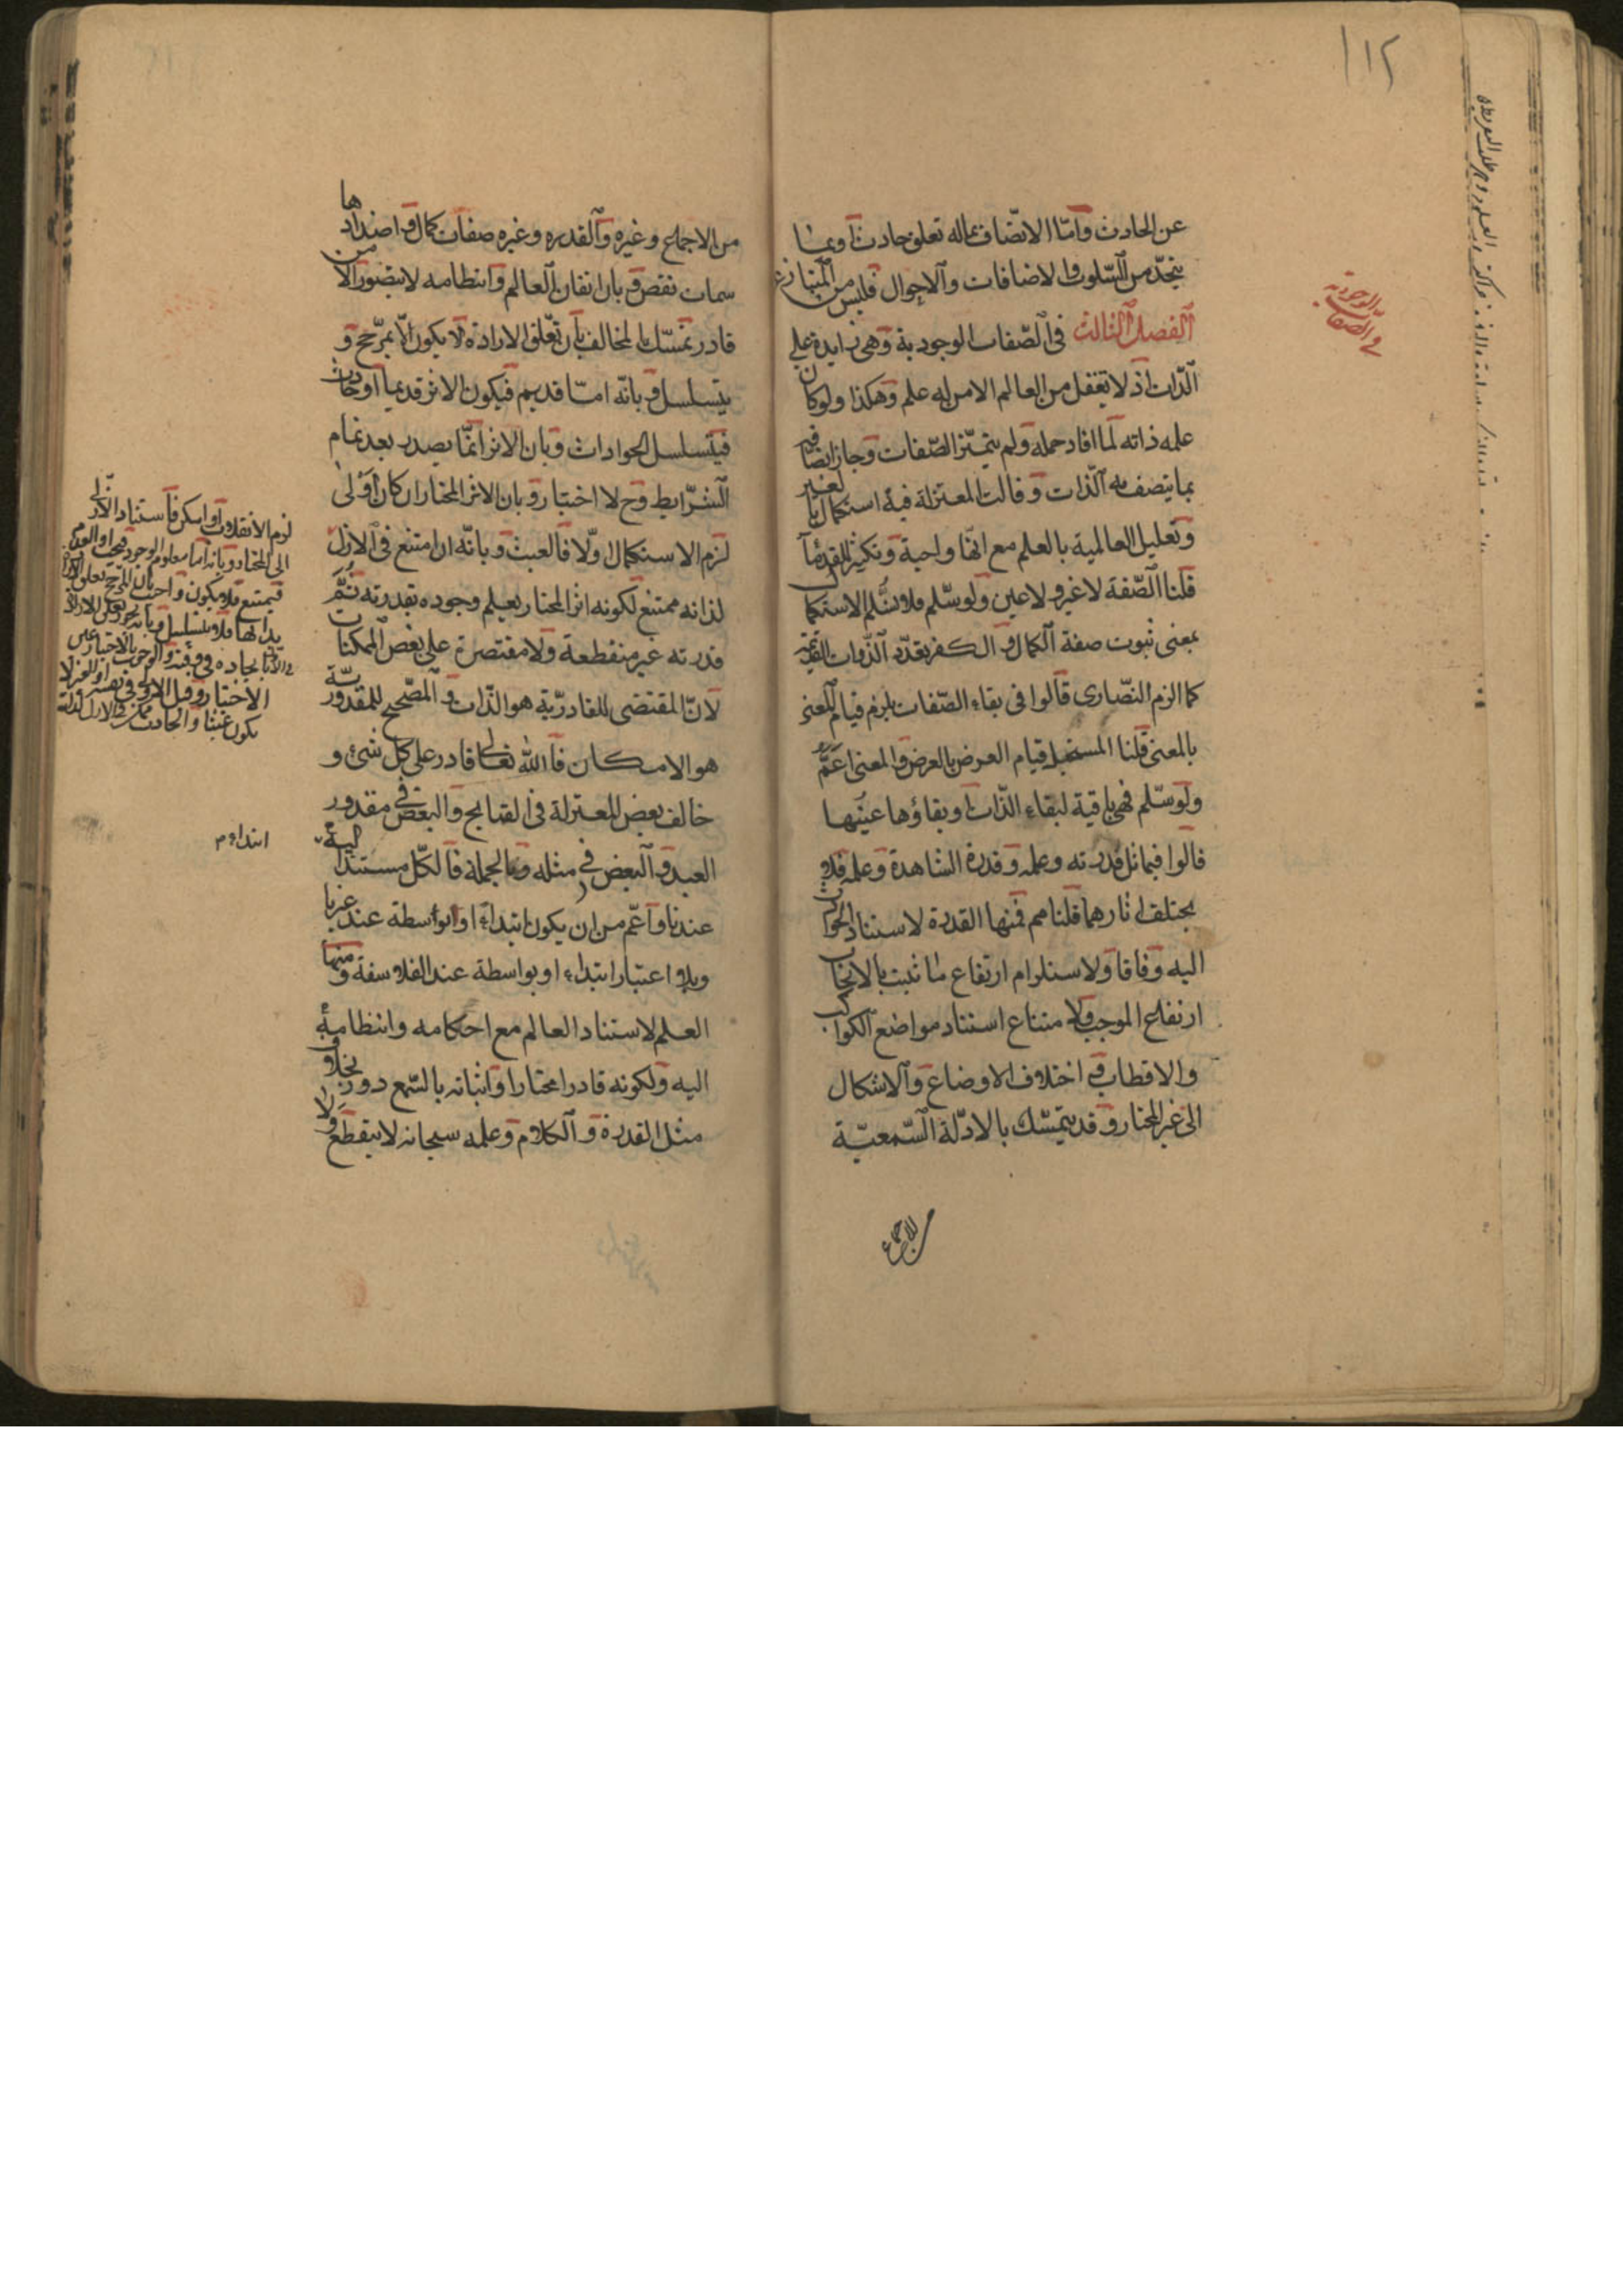 ١١٢
في الصفات
الوجودية
عن الحادث وامّا الاتّصاف بماله تعلق حادث او بما
يتجدّد من السّلوب والاضافات والاحوال فليس من المتنازع
الفصل الثالث في الصّفات الوجودية وهي زايدة علي
الذّات اذ لا يعقل من العالم الا من له علم وهكذا ولو كان
علمه ذاته لما افاد حمله ولم يتميّز الصّفات وجاز اتصافه
بما يتصف به الذّات وقالت المعتزلة فيه استكمال بالغير
وتعليل العالمية بالعلم مع انّها واجبة وتكثير القدماء
قلنا الصّفة لا غير ولا عين ولو سلّم فلا نسلّم الاستكمال
بمعنى ثبوت صفة الكمال والكفر تعدّد الذّوات القديمة
كما الزم النّصارى قالوا في بقاء الصّفات يلزم قيام المعنى
بالمعنى قلنا المستحيل قيام العرض بالعرض والمعنى اعمّ
ولو سلّم فهي باقية لبقاء الذّات او بقاؤها عينها
قالوا فيماثل قدرته وعلمه وقدرة الشاهدة وعلمه فلا
يختلف اثارهما قلنا مم فمنها القدرة لاستناد الحوادث
اليه وفاقا ولاستلزام ارتفاع ما ثبت بالايجاب
ارتفاع الموجب ولامتناع استناد مواضع الكواكب
والاقطاب في اختلاف الاوضاع والاشكال
الى غير المختار وقد يتمسّك بالادلّة السّمعيّة
من الاجماع
من الاجماع وغيره والقدره وغيره صفات كمال واضدادها
سمات نقص وبان اتقان العالم وانتظامه لا يتصور الا من
قادر تمسّك المخالف بان تعلّق الارادة لا يكون الّا بمرّجح و
يتسلسل وبانّه امّا قديم فيكون الاثر قديما او حادث
فيتسلسل الحوادث وبان الاثر انّما يصدر بعد تمام
الشّرايط وح لا اختيار وبان الاثر المختار ان كان اولى
لزم الاستكمال والّا فالعبث وبانّه ان امتنع في الازل
لذاته ممتنع لكونه اثر المختار بعلم وجوده بقدرته ثمّ
قدرته غير منقطعة ولا مقتصرة على بعض الممكنات
لانّ المقتضى للقادريّة هو الذّات والمصّحح للمقدوريّة
هو الامكان فالله تعالى قادر على كل شئ و
خالف بعض المعتزلة في القبايح والبعض في مقدور
العبد والبعض في مثله وبالجملة فالكلّ مستند اليه
عندنا واعّم من ان يكون ابتداءً او بواسطة عند غيرنا
وبلا اعتبار ابتداء او بواسطة عند الفلاسفة ومنها
العلم لاستناد العالم مع احكامه وانتظامه
اليه ولكونه قادرا مختارا واثباته بالسّمع دور بخلاف
مثل القدرة والكلام وعلمه سبحانه لا ينقطع ولا
لزم الانقلاب او امكن فاستناد الازلّي
الى المختار وبانه اما معلوم الوجود فيجب او العدم
فيمتنع فلا يكون واجب بان المرجح تعلق الارادة
لذاتها فلا يتسلسل وبانه يجوز تعلق الارادة
في الازل بايجاده في وقته والوجوب بالاختيار عين
الاختيار وقيل الاولى في نفسه او للغير لا
يكون عبثا والحادث ممكن في الازل لذاته
ابتداء م